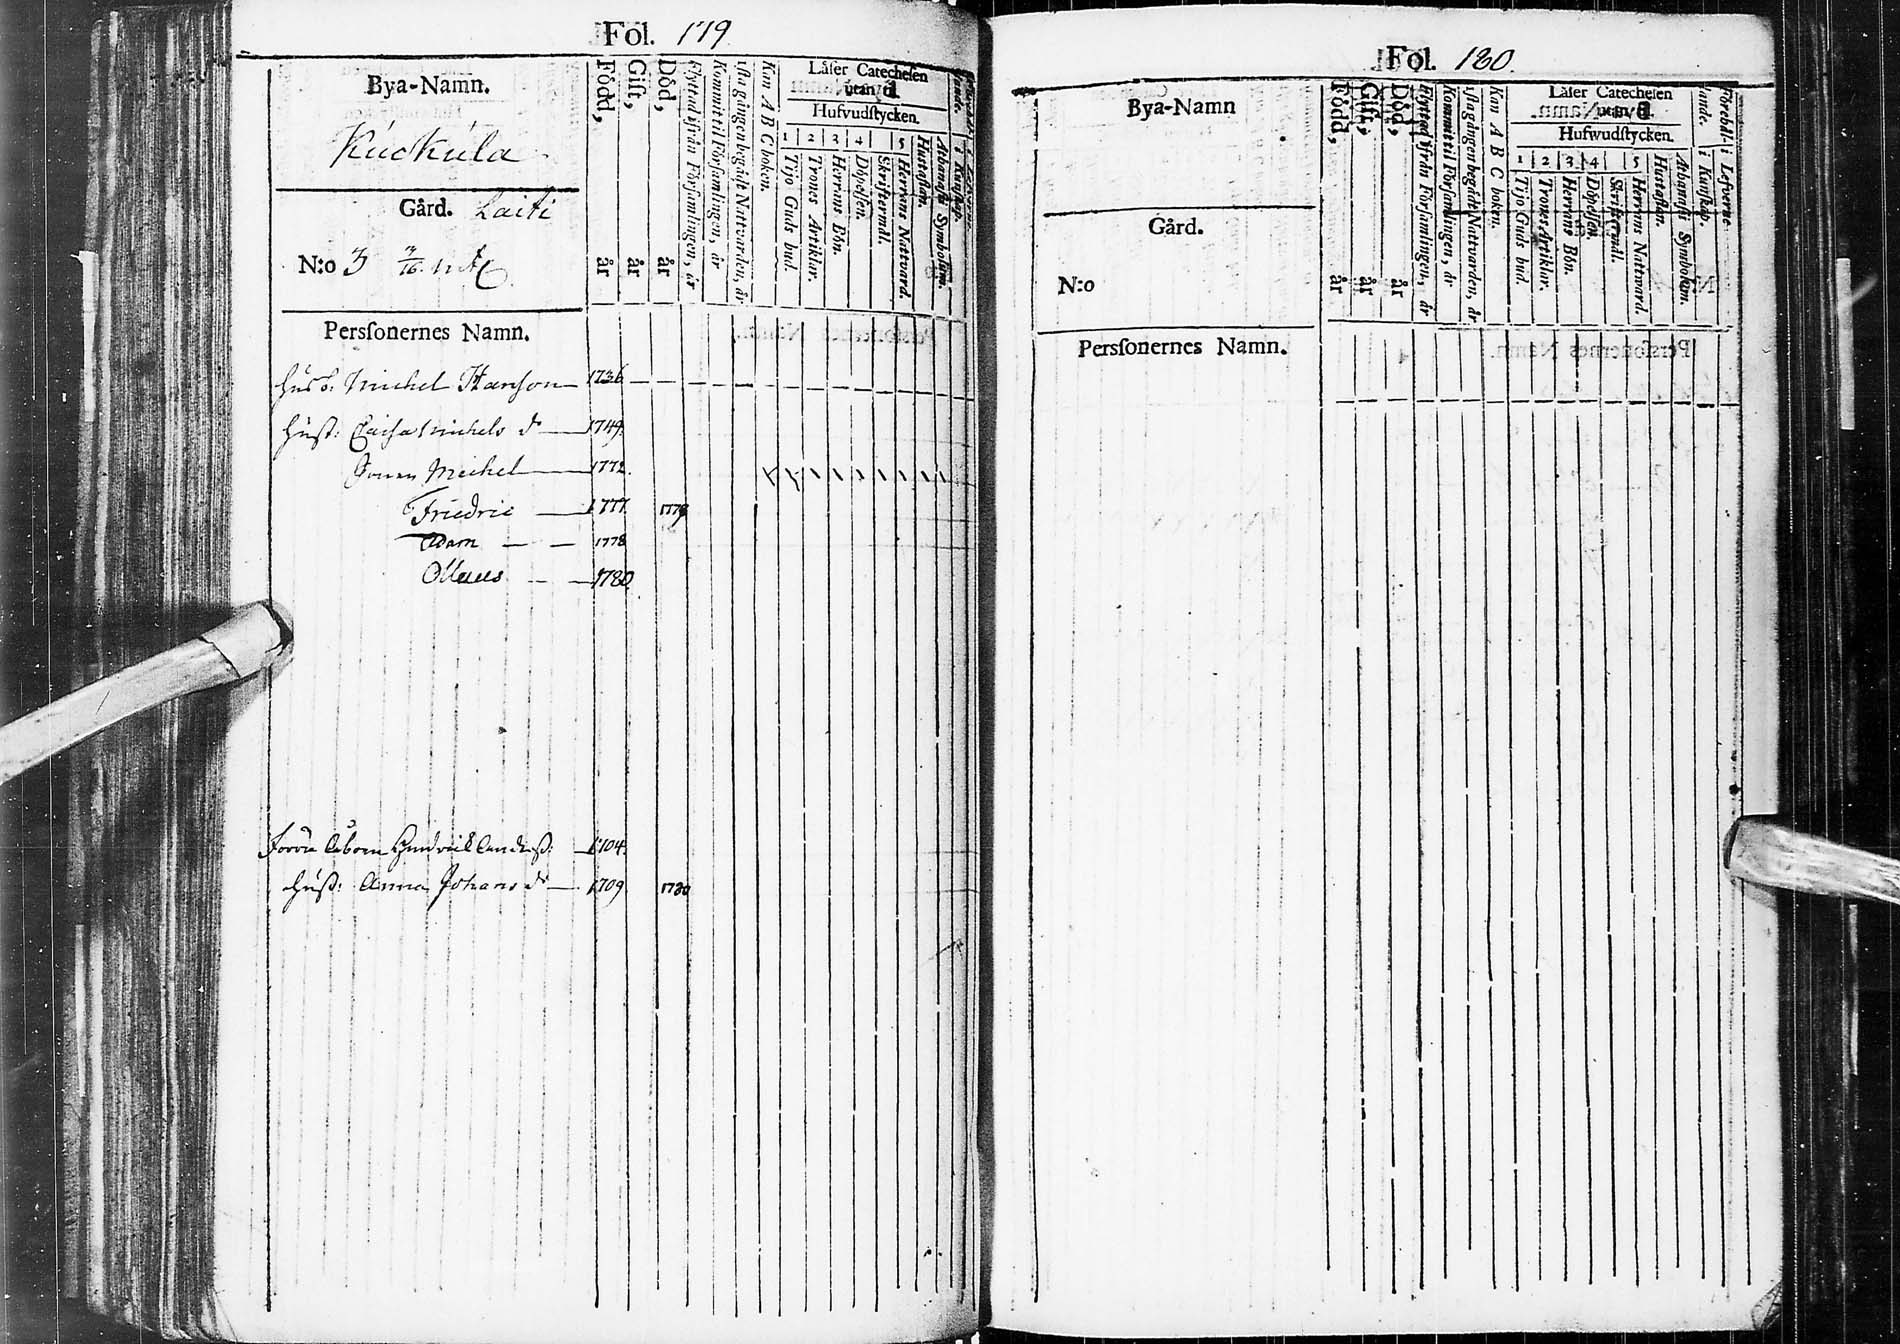 Fol. 179
Bya-Namn.
Kuckula
Gård. Laiti
N:o 3 3/16 mtl
Född, år
Gift, år
Död, år
Flyttad ifrån Församlingen, år
Kommit til Församlingen, år
1sta gången begådt Nattvarden, år
Kan A B C boken.
Låser Catechesen
utan
Hufvudstycken.
1 2 3 4 5
Tijo Guds bud.
Trones Artiklar.
Herrans Bön.
Döpelsen.
Skriftermål.
Herrans Nattvard.
Hustaflan.
Athanasii Symbolum.
i Kunskap.
Personernes Namn.
Husb: Michel Hanson 1736
Hust: Caisa Michels dr 1749.
Sonen Michel 1772.
Friedric 1777. 1779
Adam 1778
Olaus 1780
Förra Åboen Hendrick Anderss: 1704.
Hust: Anna Johans dr 1709 1780
Fol. 180.
Bya-Namn
Gård.
N:o
Född, år
Gift, år
Död, år
Flyttad ifrån Församlingen, år
Kommit til Församlingen, år
1sta gången begådt Nattvarden, år
Kan A B C boken.
Låser Catechesen
utan
Hufwudstycken.
1 2 3 4 5
Tijo Guds bud.
Trones Artiklar.
Herrans Bön.
Döpelsen.
Skriftermål.
Herrans Nattvard.
Hustaflan.
Athanasii Symbolum.
i Kunskap.
i Lefverne
Personernes Namn.